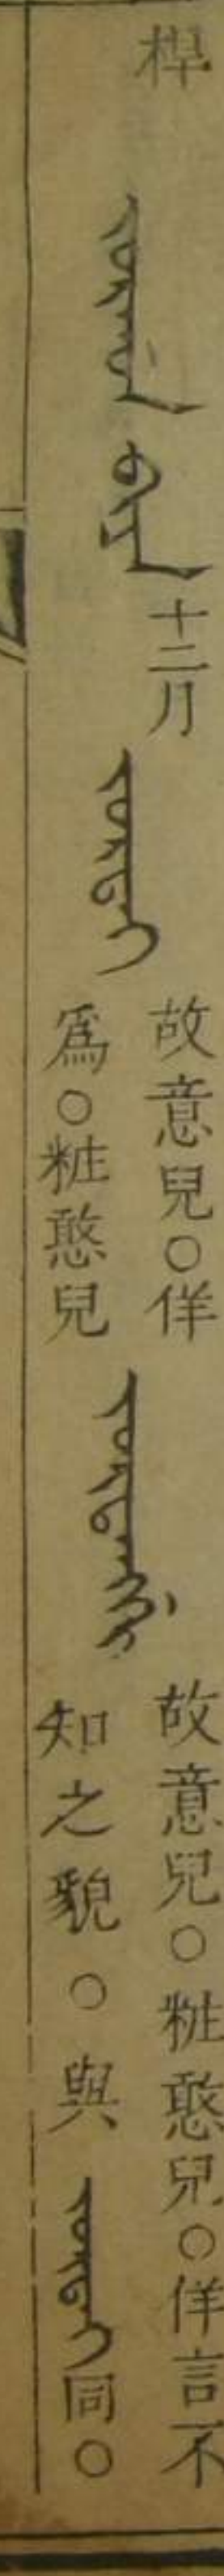 桿
ᠵᠣᡵᡤᠣᠨ ᠪᡳᠶᠠ
十二月
ᠵᠣᡵᡨᠠᡳ
故意兒○佯
爲○粧憨兒
ᠵᠣᡵᡨᠠᠩᡤᡳ
故意兒○粧憨兒○佯言不
知之貌○與ᠵᠣᡵᡨᠠᡳ同○